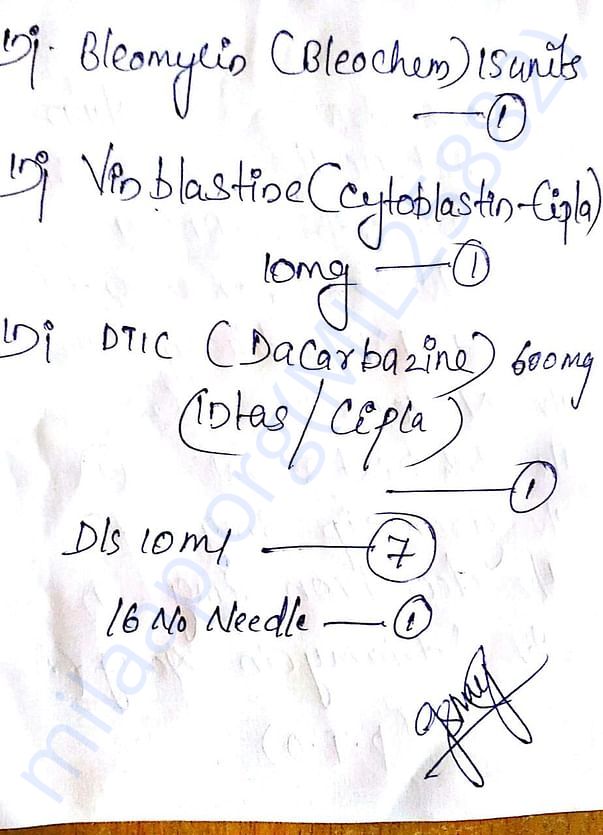 Inj. Bleomycin (Bleochem) 15 units
— 1
Inj Vinblastine (Cytoblastin-Cipla)
10mg — 1
Inj DTIC (Dacarbazine) 600mg
(Intas / Cipla)
— 1
D/s 10ml — 7
16 No Needle — 1
milaap.org(MIL25882)